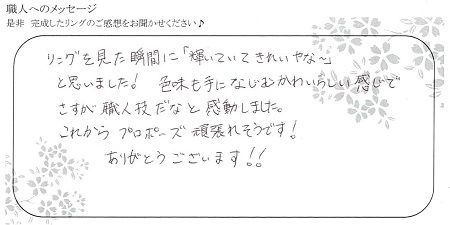 職人へのメッセージ
是非 完成したリングのご感想をお聞かせください♪
リングを見た瞬間に「輝いていてきれいやな~」
と思いました! 色味も手になじむかわいらしい感じで
さすが職人技だなと感動しました。
これからプロポーズ頑張れそうです!
ありがとうございます!!